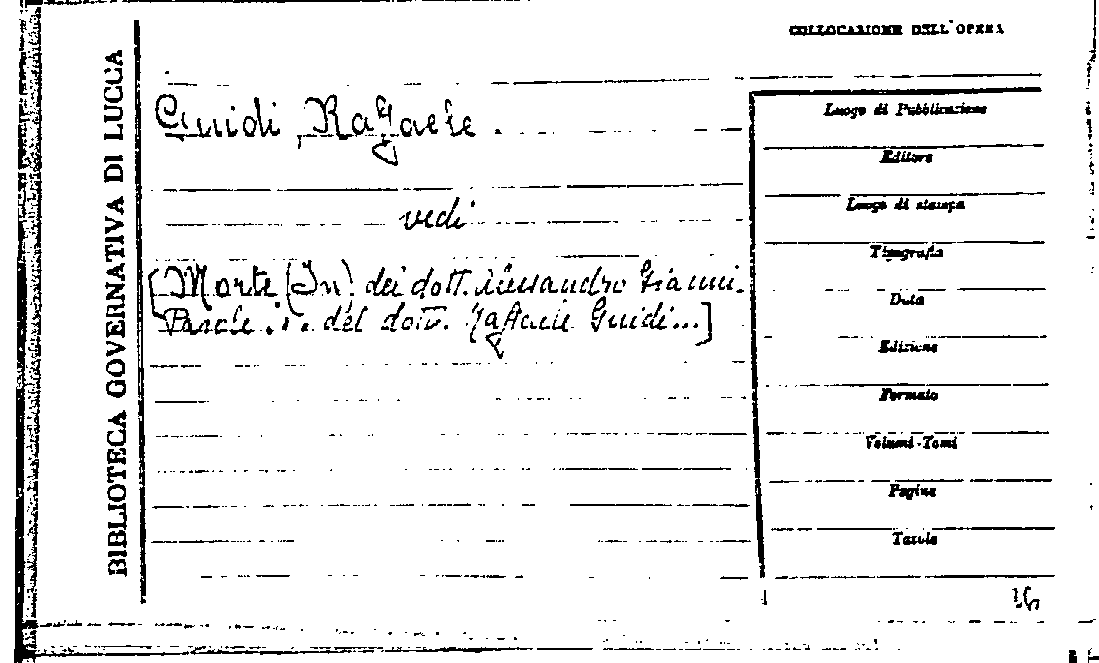 COLLOCAZIONE DELL'OPERA
BIBLIOTECA GOVERNATIVA DI LUCCA
Guidi, Raffaele.
vedi
[Morte (In) dei dott. Alessandro Gianni.
Parole ... del dott. Raffaele Guidi...]
Luogo di Pubblicazione
Editore
Luogo di stampa
Tipografia
Data
Edizione
Formato
Volumi-Tomi
Pagine
Tavole